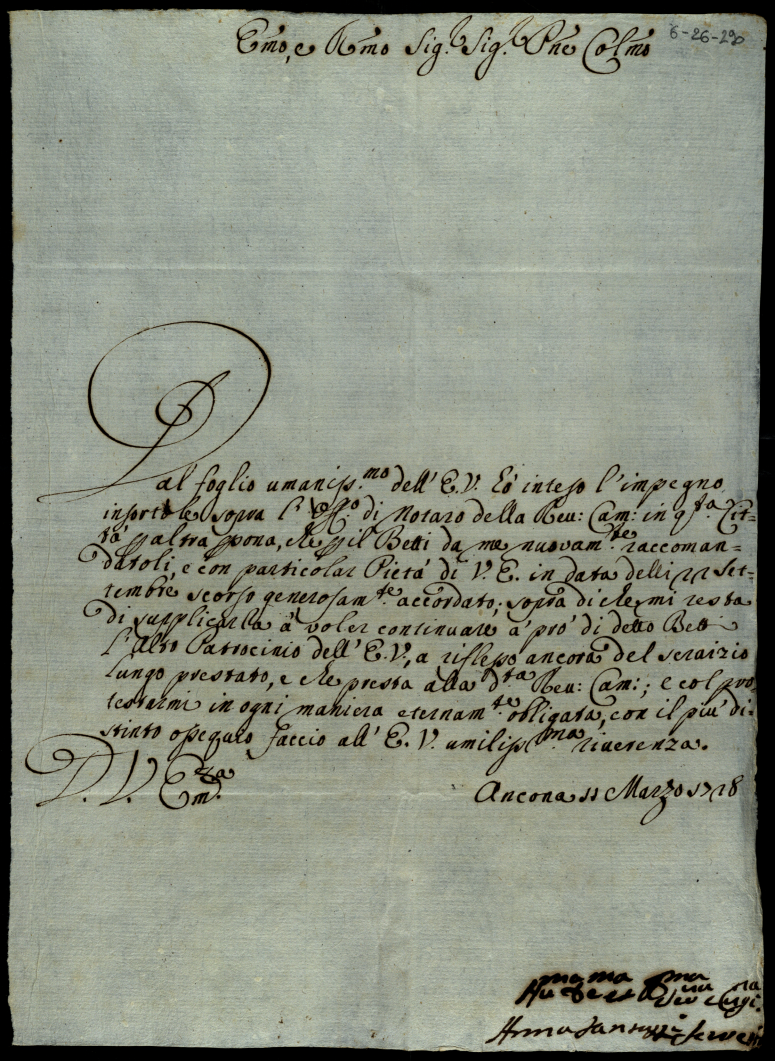 6-26-29
Emo, e Rmo Sig.r Sig.r Pne Colmo
Dal foglio umaniss.mo dell' E.V. hò inteso l'impegno
insorto sopra l' di Notaro della Reu: Cam: in q.sta Cit-
tà p altra psona, che p il Betti da me nuovam.te raccoman=
datoli, e con particolar Pietà di V. E. in data delli 22 Set-
tembre scorso generosam.te accordato; sopra di che mi resta
di supplicarla à voler continuare à prò di detto Betti
l'Alto Patrocinio dell' E.V., a riflesso ancora del seruizio
lungo prestato, e che presta alla d.ta Reu: Cam:; e col pro
testarmi in ogni maniera eternam.te obligata, con il più di=
stinto ossequio faccio all' E. V. umiliss.ma riuerenza.
D. V. Em.za
Ancona 11 Marzo 1728
Anna